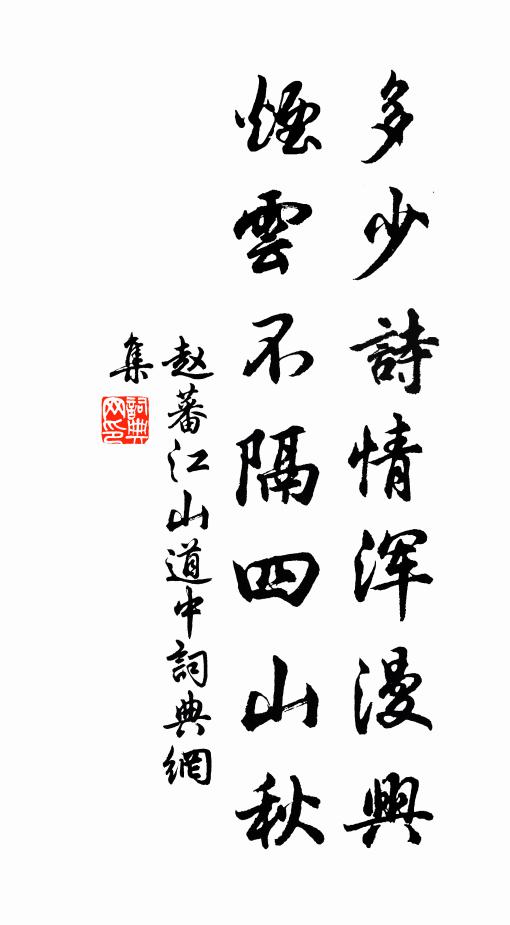 多少詩情渾漫興
煙雲不隔四山秋
赵蕃江山道中詞典網
集
詞典
网印